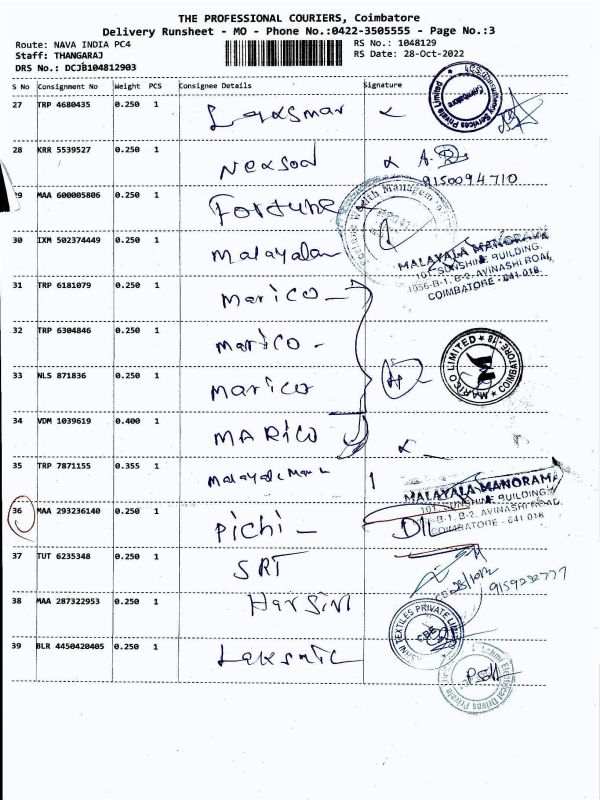 THE PROFESSIONAL COURIERS, Coimbatore
Delivery Runsheet - MO - Phone No.:0422-3505555 - Page No.:3
Route: NAVA INDIA PC4 RS No.: 1048129
Staff: THANGARAJ RS Date: 28-Oct-2022
DRS No.: DCJB104812903
S No Consignment No Weight PCS Consignee Details Signature
27 TRP 4680435 0.250 1
28 KRR 5539527 0.250 1
9150094710
29 MAA 600005806 0.250 1 Fortune
30 IXM 502374449 0.250 1 Malayalam
MALAYALA MANORAMA
SUNSHINE BUILDING,
1056-B-1, B-2, AVINASHI ROAD,
COIMBATORE - 641 018.
31 TRP 6181079 0.250 1 Marico -
32 TRP 6304846 0.250 1 Marico -
33 NLS 871836 0.250 1 Marico
MARICO LIMITED * COIMBATORE-18 *
34 VDM 1039619 0.400 1 MARICO
35 TRP 7871155 0.355 1
MALAYALA MANORAMA
SUNSHINE BUILDING,
B-1, B-2, AVINASHI ROAD,
COIMBATORE - 641 018
36 MAA 293236140 0.250 1 Pichi - D/L
37 TUT 6235348 0.250 1 SRT
38 MAA 287322953 0.250 1 Harsini
39 BLR 4450420405 0.250 1